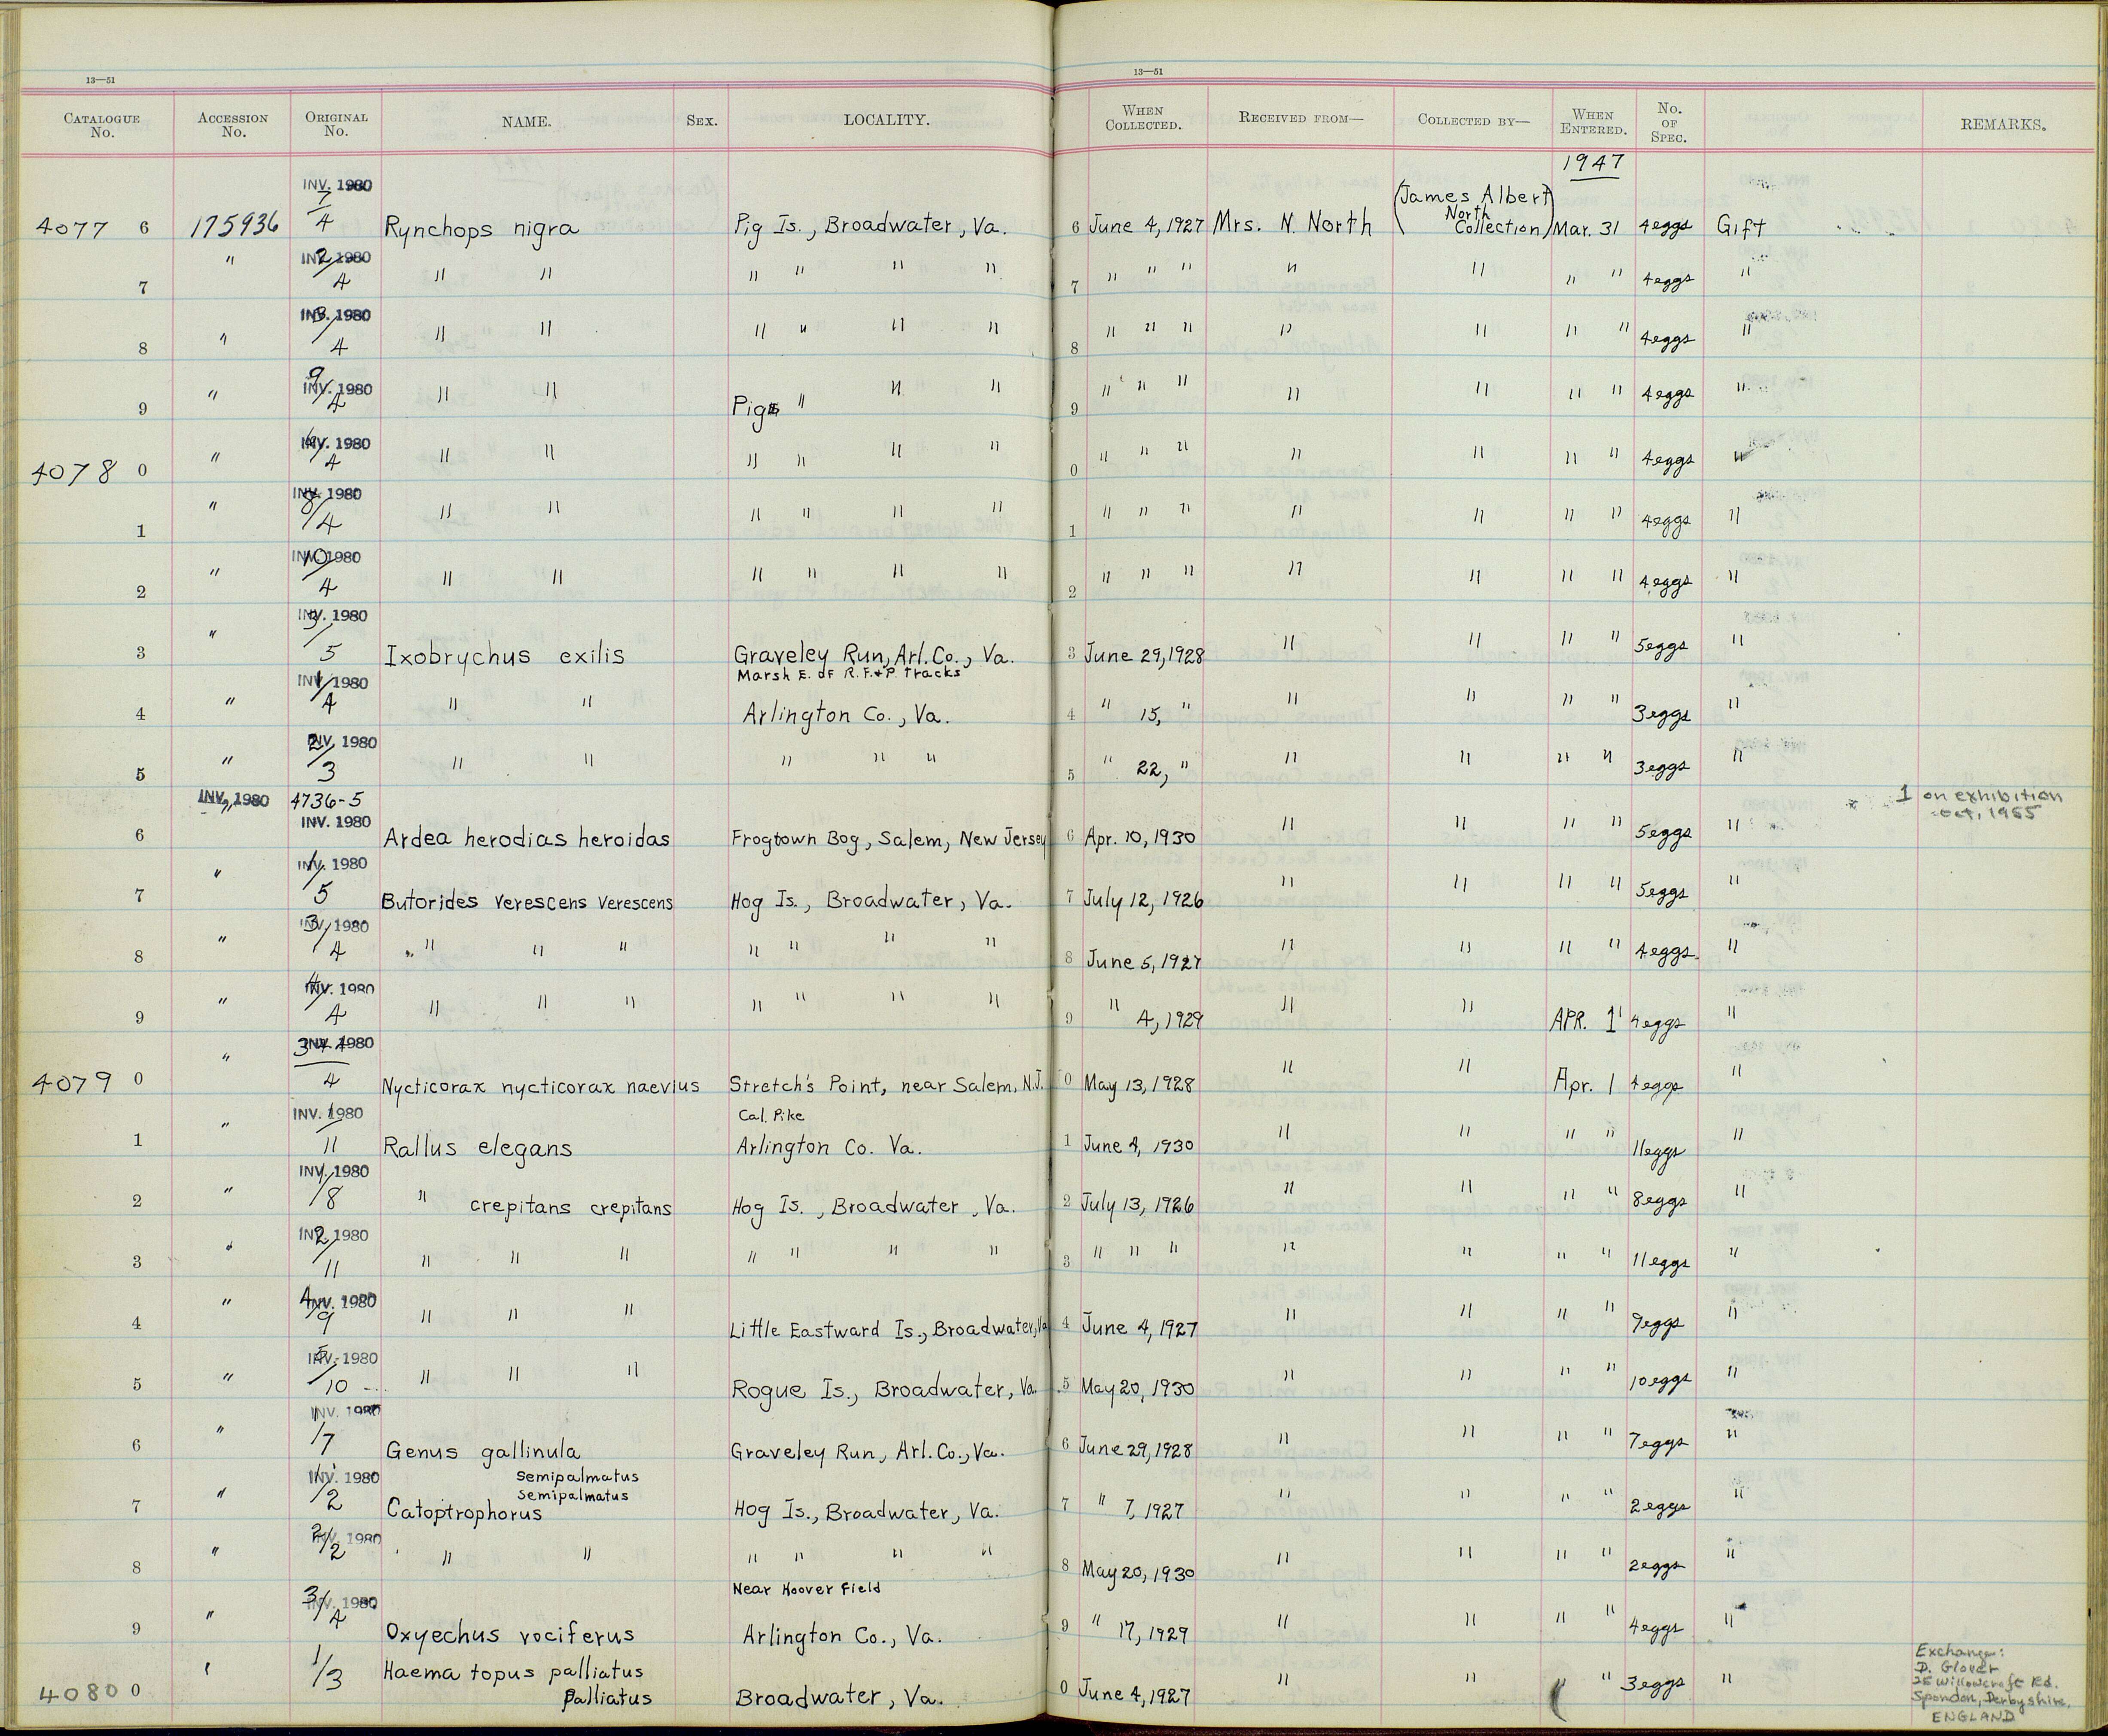 13—51 13—51
CATALOGUE No. ACCESSION No. ORIGINAL No. NAME. SEX. LOCALITY. WHEN COLLECTED. RECEIVED FROM— COLLECTED BY— WHEN ENTERED. No. OF SPEC. REMARKS.
1947
INV. 1980
4077 6 175936 7/4 Rynchops nigra Pig Is., Broadwater, Va. 6 June 4, 1927 Mrs. N. North (James Albert North Collection) Mar. 31 4 eggs Gift
INV. 1980
7 " 2/4 " " " " " " 7 " " " " " " " 4 eggs "
INV. 1980
8 " 3/4 " " " " " " 8 " " " " " " " 4 eggs "
INV. 1980
9 " 9/4 " " Pigs " " " 9 " " " " " " " 4 eggs "
INV. 1980
4078 0 " /4 " " " " " " 0 " " " " " " " 4 eggs "
INV. 1980
1 " 8/4 " " " " " " 1 " " " " " " " 4 eggs "
INV. 1980
2 " 10/4 " " " " " " 2 " " " " " " " 4 eggs "
INV. 1980
3 " 3/5 Ixobrychus exilis Graveley Run, Arl. Co., Va. 3 June 29, 1928 " " " " 5 eggs "
Marsh E. of R.F.&P. tracks
INV. 1980
4 " 1/4 " " Arlington Co., Va. 4 " 15, " " " " " 3 eggs "
INV. 1980
5 " 2/3 " " " " " 5 " 22, " " " " " 3 eggs "
INV. 1980 4736-5 1 on exhibition
INV. 1980 oct, 1955
6 " Ardea herodias heroidas Frogtown Bog, Salem, New Jersey 6 Apr. 10, 1930 " " " " 5 eggs "
INV. 1980
7 " 1/5 Butorides verescens verescens Hog Is., Broadwater, Va. 7 July 12, 1926 " " " " 5 eggs "
INV. 1980
8 " 3/4 " " " " " " " 8 June 5, 1927 " " " " 4 eggs "
INV. 1980
9 " 4/4 " " " " " " " 9 " 4, 1929 " " APR. 1 4 eggs "
INV. 1980
4079 0 " 344/4 Nycticorax nycticorax naevius Stretch's Point, near Salem, N.J. 0 May 13, 1928 " " Apr. 1 4 eggs "
INV. 1980 Cal. Pike
1 " 1/11 Rallus elegans Arlington Co. Va. 1 June 4, 1930 " " " " 11 eggs "
INV. 1980
2 " 1/8 " crepitans crepitans Hog Is., Broadwater, Va. 2 July 13, 1926 " " " " 8 eggs "
INV. 1980
3 " 2/11 " " " " " " " 3 " " " " " " " 11 eggs "
INV. 1980
4 " 4/9 " " " Little Eastward Is., Broadwater, Va 4 June 4, 1927 " " " " 9 eggs "
INV. 1980
5 " 5/10 " " " Rogue Is., Broadwater, Va. 5 May 20, 1930 " " " " 10 eggs "
INV. 1980
6 " 1/7 Genus gallinula Graveley Run, Arl. Co., Va. 6 June 29, 1928 " " " " 7 eggs "
INV. 1980 semipalmatus
semipalmatus
7 " 1/2 Catoptrophorus Hog Is., Broadwater, Va. 7 " 7, 1927 " " " " 2 eggs "
INV. 1980
8 " 2/2 " " " " " " 8 May 20, 1930 " " " " 2 eggs "
INV. 1980 Near Hoover Field
9 " 3/4 Oxyechus vociferus Arlington Co., Va. 9 " 17, 1929 " " " " 4 eggs "
Haematopus palliatus
4080 0 " 1/3 palliatus Broadwater, Va. 0 June 4, 1927 " " " " 3 eggs "
Exchange:
D. Glover
25 Willowcroft Rd.
Spondon, Derbyshire,
ENGLAND